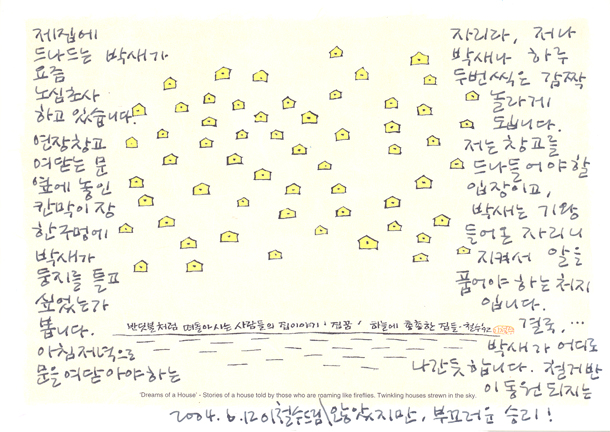 제집에
드나드는 박새가
요즘
노심초사
하고 있습니다.
연장창고
여닫는 문
옆에 놓인
칸막이장
한구멍에
박새가
둥지를 틀고
싶었는가
봅니다.
아침저녁으로
문을 여닫아야하는
자리라, 저나
박새나 하루
두번씩은 깜짝
놀라게
됩니다.
저는 창고를
드나들어야할
입장이고,
박새는 기왕
들어온 자리니
지켜서 알을
품어야 하는 처지
입니다.
결국, …
박새가 어디로
나간듯 합니다. 철거반
이 동원되지는
반딧불처럼 떠돌아 사는 사람들의 집이야기 '집꿈' 하늘에 총총한 집들·철수
'Dreams of a House' - Stories of a house told by those who are roaming like fireflies. Twinkling houses strewn in the sky.
2004. 6. 12 이철수드림 않았지만, 부끄러운 승리!